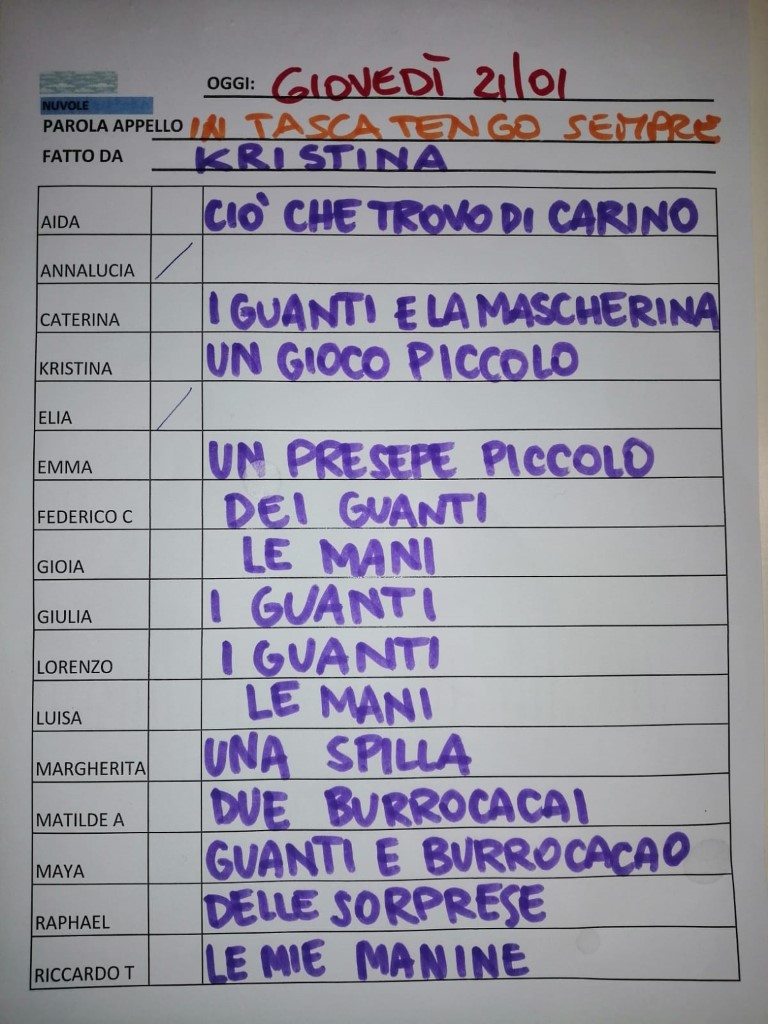 OGGI: GIOVEDÌ 21/01
NUVOLE
PAROLA APPELLO IN TASCA TENGO SEMPRE
FATTO DA KRISTINA
AIDA CIO' CHE TROVO DI CARINO
ANNALUCIA /
CATERINA I GUANTI E LA MASCHERINA
KRISTINA UN GIOCO PICCOLO
ELIA /
EMMA UN PRESEPE PICCOLO
FEDERICO C DEI GUANTI
GIOIA LE MANI
GIULIA I GUANTI
LORENZO I GUANTI
LUISA LE MANI
MARGHERITA UNA SPILLA
MATILDE A DUE BURROCACAI
MAYA GUANTI E BURROCACAO
RAPHAEL DELLE SORPRESE
RICCARDO T LE MIE MANINE